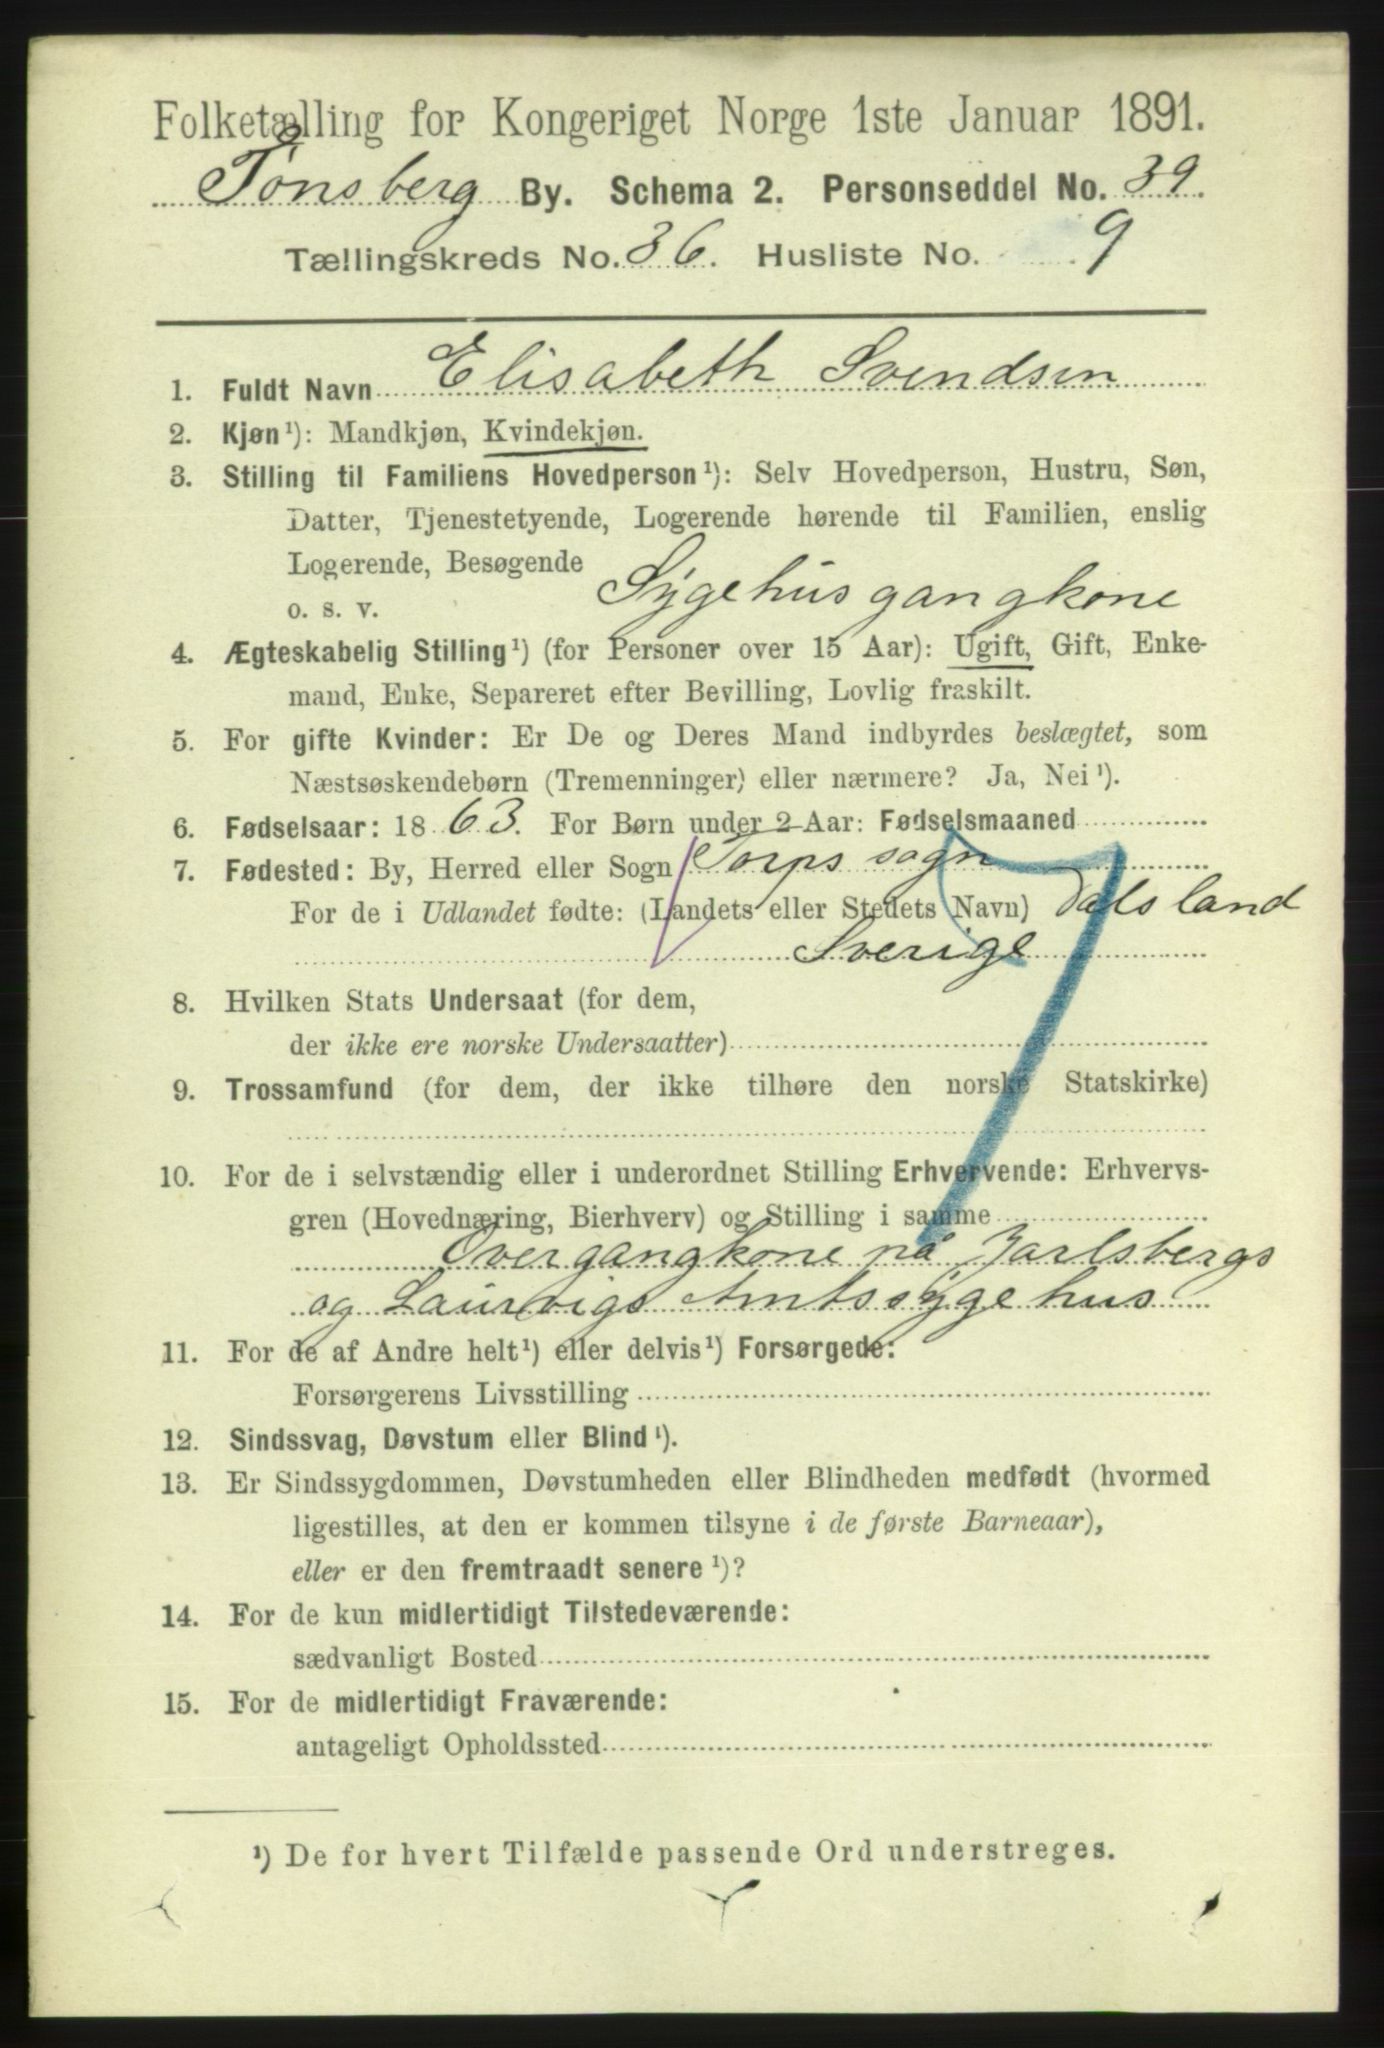 Folketælling for Kongeriget Norge 1ste Januar 1891.
Tönsberg By. Schema 2. Personseddel No. 39.
Tællingskreds No. 36. Husliste No. 9
1. Fuldt Navn Elisabeth Svendsen
2. Kjøn¹): Mandkjøn, Kvindekjøn.
3. Stilling til Familiens Hovedperson¹): Selv Hovedperson, Hustru, Søn,
Datter, Tjenestetyende, Logerende hørende til Familien, enslig
Logerende, Besøgende
o. s. v. Sygehusgangkone
4. Ægteskabelig Stilling¹) (for Personer over 15 Aar): Ugift, Gift, Enke-
mand, Enke, Separeret efter Bevilling, Lovlig fraskilt.
5. For gifte Kvinder: Er De og Deres Mand indbyrdes beslægtet, som
Næstsøskendebørn (Tremenninger) eller nærmere? Ja, Nei¹).
6. Fødselsaar: 1863. For Børn under 2 Aar: Fødselsmaaned
7. Fødested: By, Herred eller Sogn Torps sogn
For de i Udlandet fødte: (Landets eller Stedets Navn) Dalsland
Sverige
8. Hvilken Stats Undersaat (for dem,
der ikke ere norske Undersaatter)
9. Trossamfund (for dem, der ikke tilhøre den norske Statskirke)
10. For de i selvstændig eller i underordnet Stilling Erhvervende: Erhvervs-
gren (Hovednæring, Bierhverv) og Stilling i samme
Overgangkone på Jarlsbergs
og Laurvigs Amtssygehus
11. For de af Andre helt¹) eller delvis¹) Forsørgede:
Forsørgerens Livsstilling
12. Sindssvag, Døvstum eller Blind¹).
13. Er Sindssygdommen, Døvstumheden eller Blindheden medfødt (hvormed
ligestilles, at den er kommen tilsyne i de første Barneaar),
eller er den fremtraadt senere¹)?
14. For de kun midlertidigt Tilstedeværende:
sædvanligt Bosted
15. For de midlertidigt Fraværende:
antageligt Opholdssted
¹) De for hvert Tilfælde passende Ord understreges.